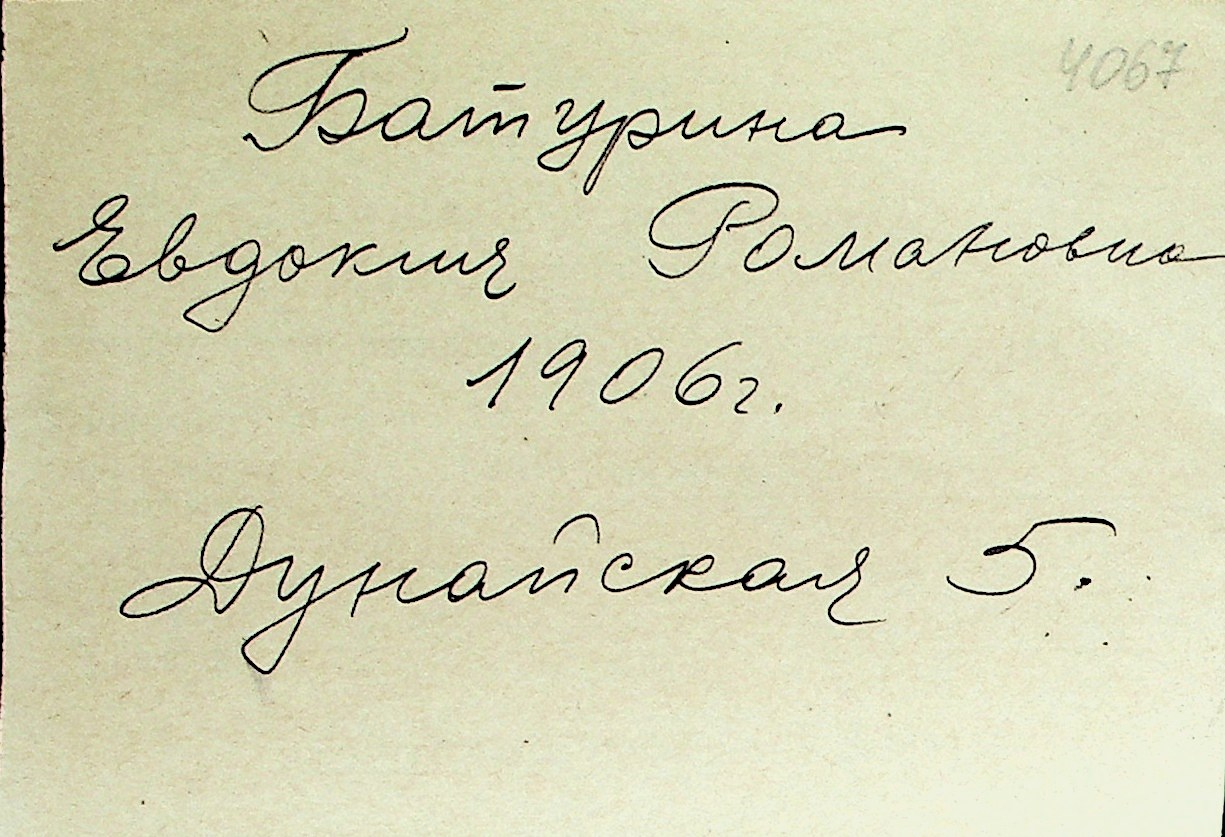 4067
Батурина
Евдокия Романовна
1906 г.
Дунайская 5.